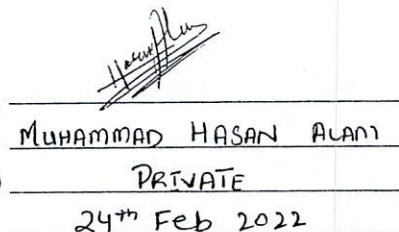 MUHAMMAD HASAN ALAM
PRIVATE
24th Feb 2022